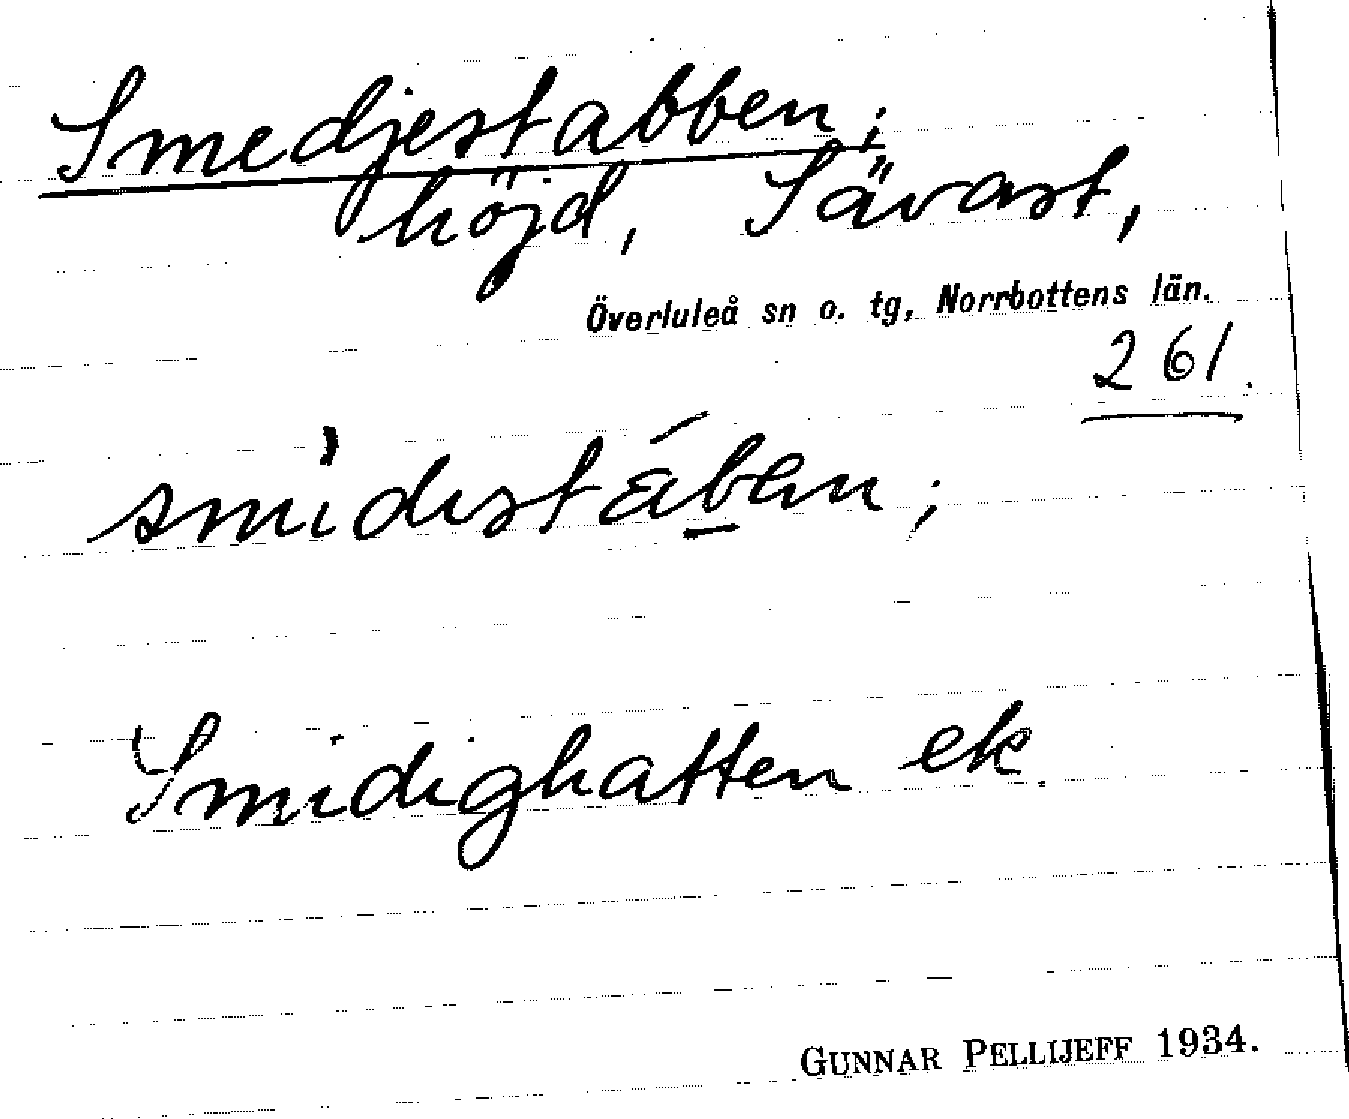 Smedjestabben;
höjd, Sävast,
Överluleå sn o. tg, Norrbottens län.
261.
Smidighatten ek.
GUNNAR PELLIJEFF 1934.